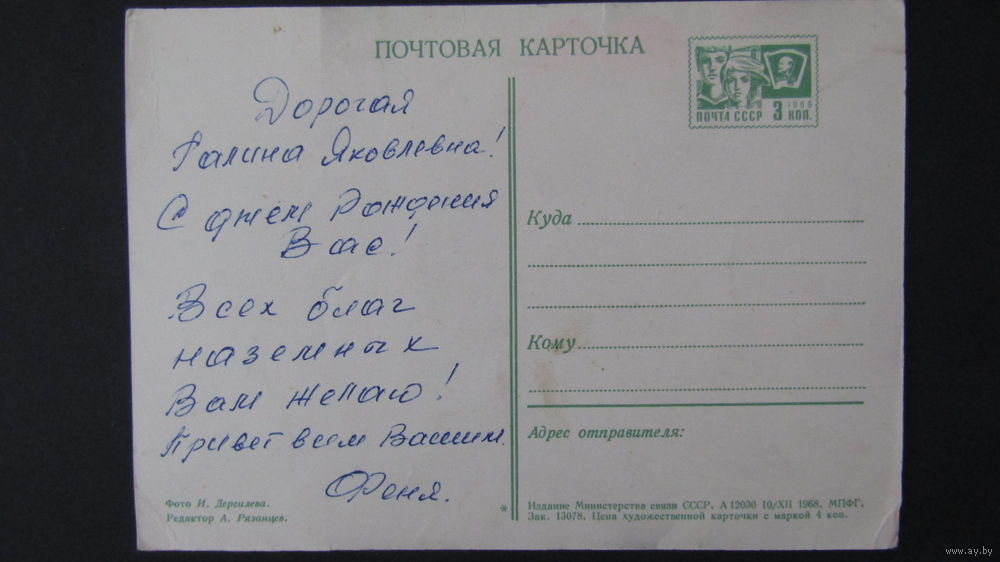 ПОЧТОВАЯ КАРТОЧКА
1966
ПОЧТА СССР 3 КОП.
Дорогая
Галина Яковлевна!
С днём Рождения
Вас!
Всех благ
наземных
Вам желаю!
Привет всем Вашим.
Феня.
Фото И. Дергилева.
Редактор А. Рязанцев.
*
Куда
Кому
Адрес отправителя:
Издание Министерства связи СССР. А 12030 10/XII 1968. МПФГ.
Зак. 13078. Цена художественной карточки с маркой 4 коп.
www.ay.by